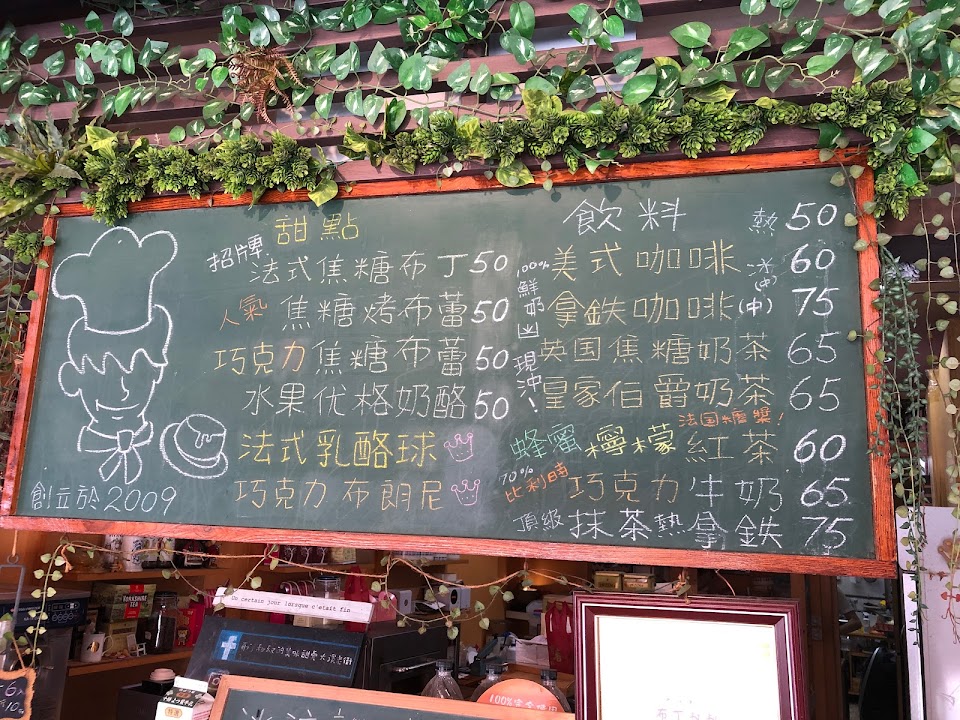 甜點
招牌 法式焦糖布丁 50
人氣 焦糖烤布蕾 50
巧克力焦糖布蕾 50
水果优格奶酪 50
法式乳酪球
巧克力布朗尼
創立於2009
飲料
100% 鮮奶 現沖!
美式咖啡 熱 50
冰(中) 60
拿鉄咖啡(中) 75
英国焦糖奶茶 65
皇家伯爵奶茶 65
法国糖漿!
蜂蜜檸檬紅茶 60
70% 比利時 巧克力牛奶 65
頂級 抹茶熱拿鉄 75
Un certain jour lorsque c'était fin
YORKSHIRE TEA
100%